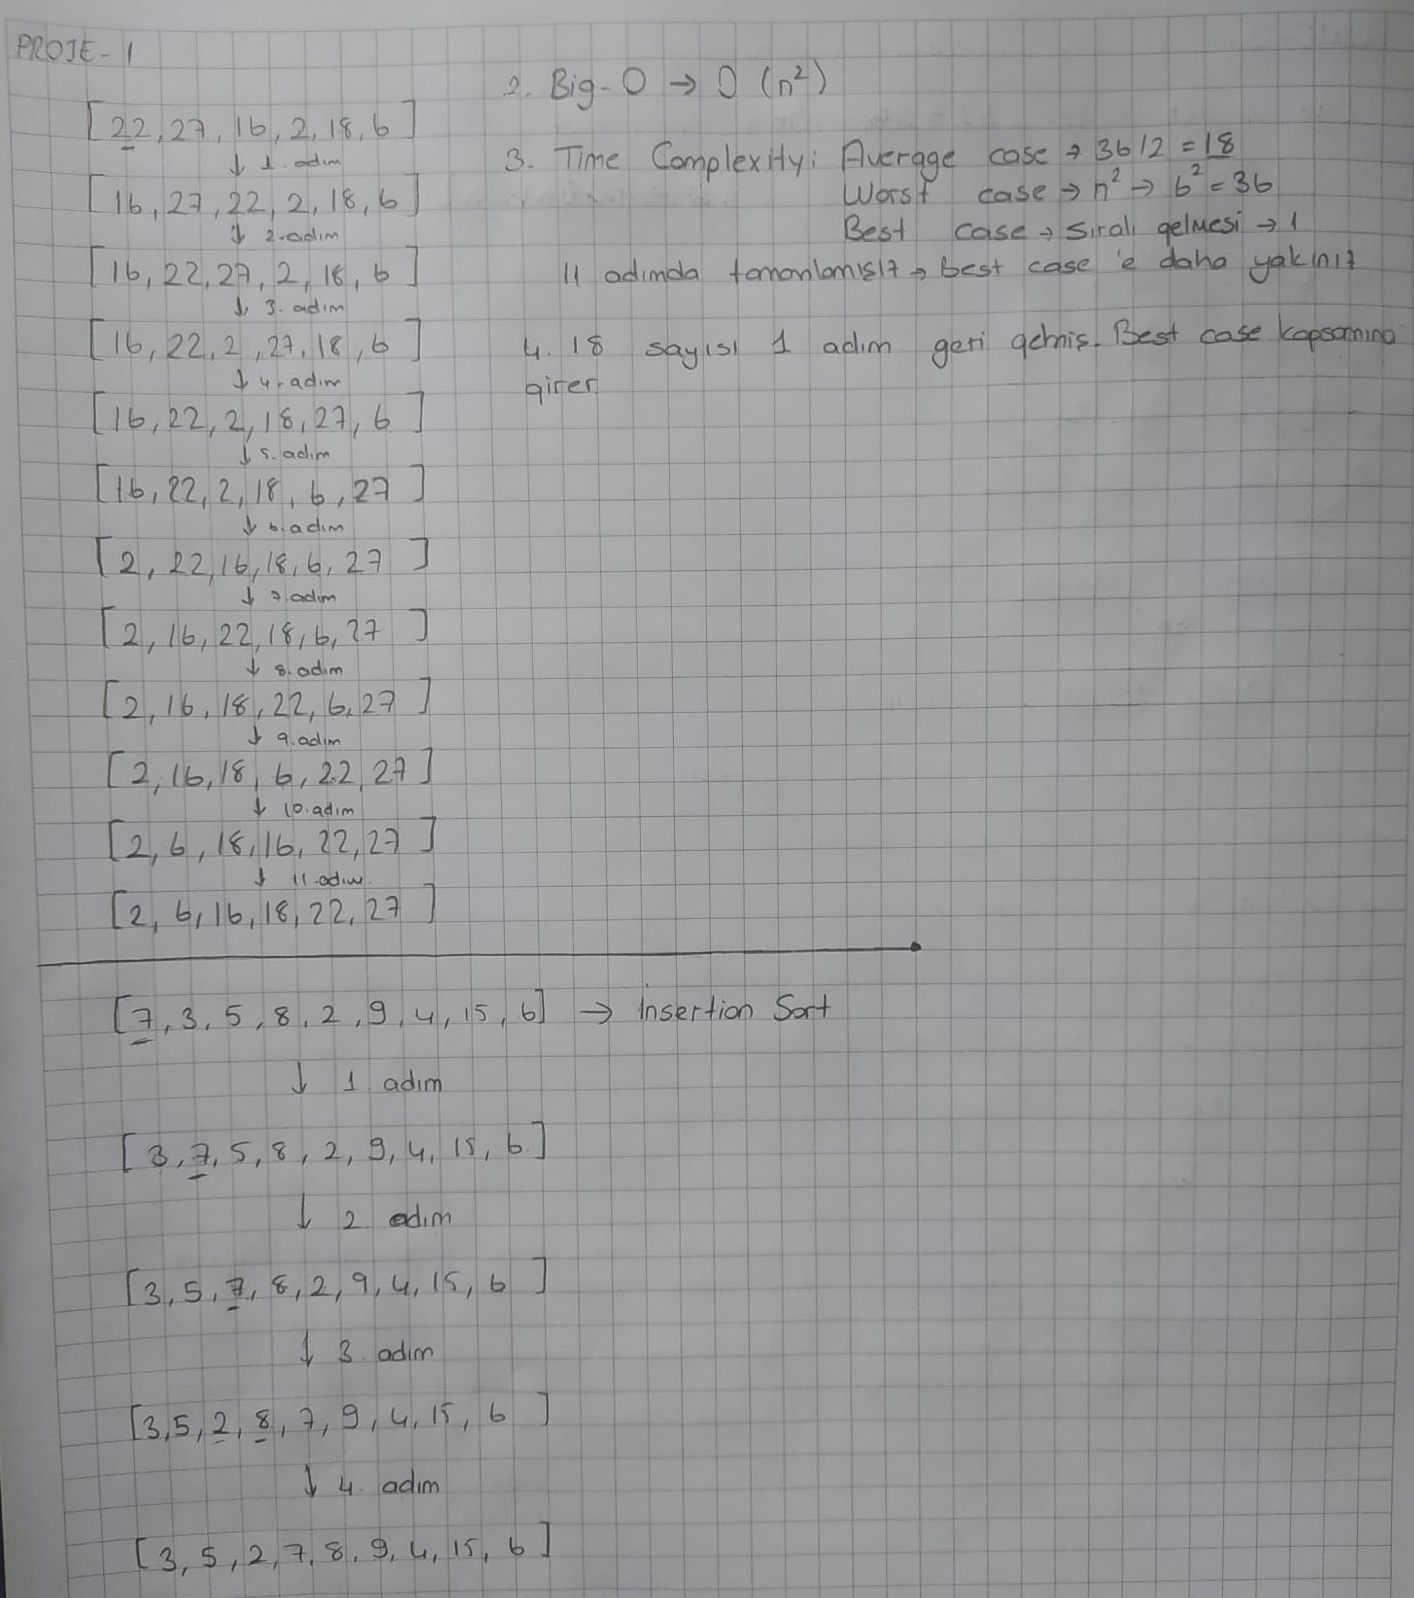 PROJE - 1
[22, 27, 16, 2, 18, 6]
↓ 1. adım
[16, 27, 22, 2, 18, 6]
↓ 2. adım
[16, 22, 27, 2, 18, 6]
↓ 3. adım
[16, 22, 2, 27, 18, 6]
↓ 4. adım
[16, 22, 2, 18, 27, 6]
↓ 5. adım
[16, 22, 2, 18, 6, 27]
↓ 6. adım
[2, 22, 16, 18, 6, 27]
↓ 7. adım
[2, 16, 22, 18, 6, 27]
↓ 8. adım
[2, 16, 18, 22, 6, 27]
↓ 9. adım
[2, 16, 18, 6, 22, 27]
↓ 10. adım
[2, 6, 18, 16, 22, 27]
↓ 11. adım.
[2, 6, 16, 18, 22, 27]
2. Big-O → O (n²)
3. Time Complexity: Average case → 36/2 = 18
Worst case → n² → 6² = 36
Best case → sıralı gelmesi → 1
11 adımda tamamlamışız → best case 'e daha yakınız
4. 18 sayısı 1 adım geri gelmiş. Best case kapsamına
girer
[7, 3, 5, 8, 2, 9, 4, 15, 6] → Insertion Sort
↓ 1 adım
[3, 7, 5, 8, 2, 9, 4, 15, 6]
↓ 2. adım
[3, 5, 7, 8, 2, 9, 4, 15, 6]
↓ 3. adım
[3, 5, 2, 8, 7, 9, 4, 15, 6]
↓ 4. adım
[3, 5, 2, 7, 8, 9, 4, 15, 6]